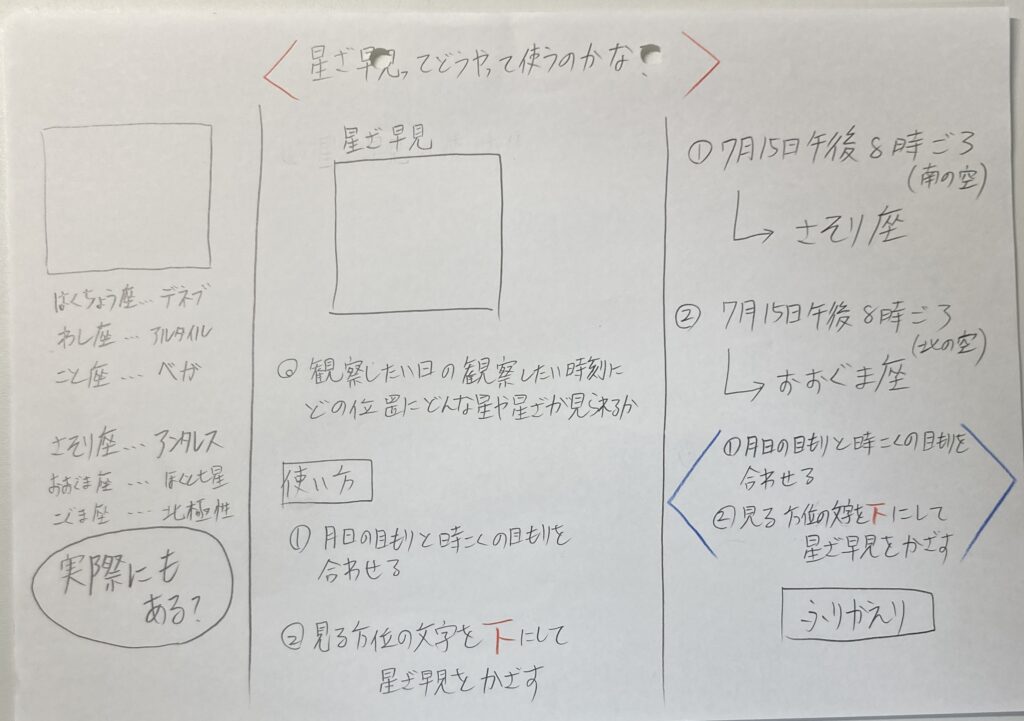 星ざ早見ってどうやって使うのかな?
はくちょう座…デネブ
わし座…アルタイル
こと座…ベガ
さそり座…アンタレス
おおぐま座…ほくと七星
こぐま座…北極性
実際にも
ある?
星ざ早見
◎観察したい日の観察したい時刻に
どの位置にどんな星や星ざが見られるか
使い方
①月日の目もりと時こくの目もりを
合わせる
②見る方位の文字を下にして
星ざ早見をかざす
①7月15日午後8時ごろ
(南の空)
さそり座
②7月15日午後8時ごろ
(北の空)
おおぐま座
①月日の目もりと時こくの目もりを
合わせる
②見る方位の文字を下にして
星ざ早見をかざす
ふりかえり